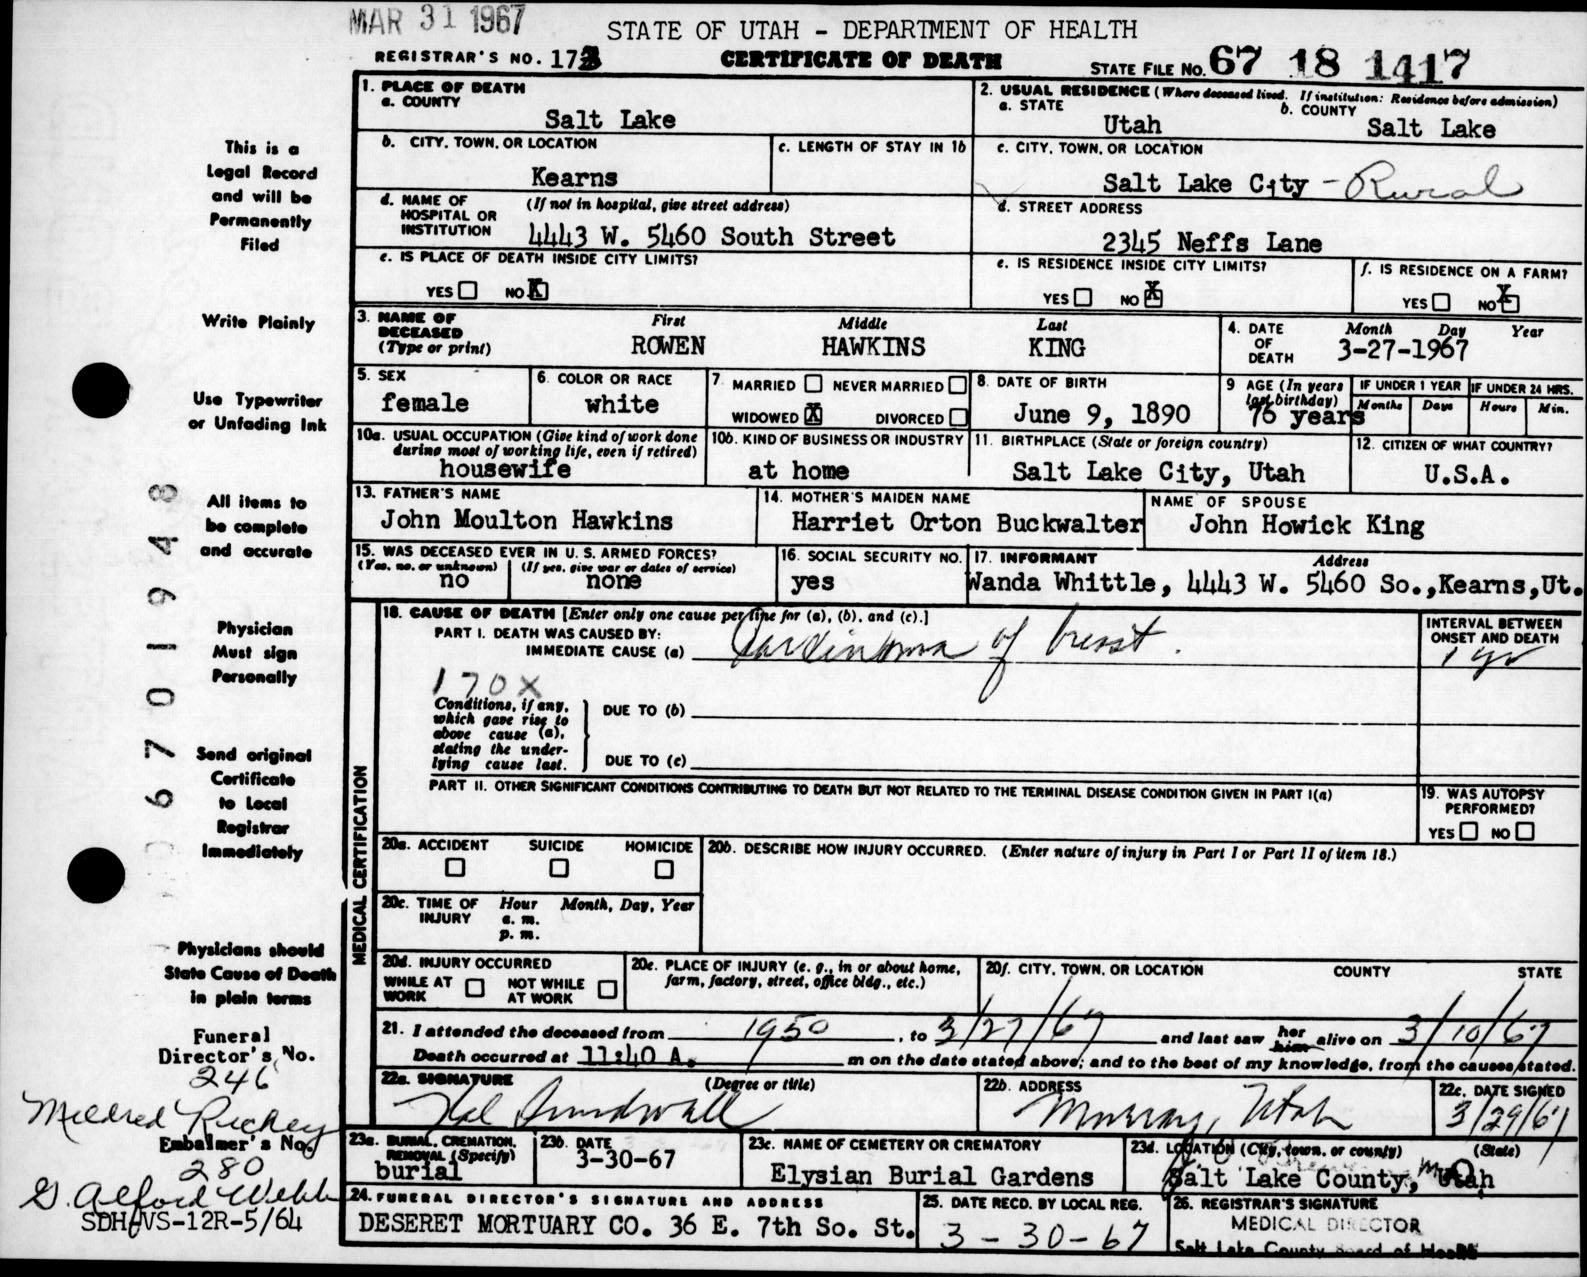 MAR 31 1967
STATE OF UTAH - DEPARTMENT OF HEALTH
REGISTRAR'S NO. 173 CERTIFICATE OF DEATH STATE FILE NO. 67 18 1417
1. PLACE OF DEATH
a. COUNTY
Salt Lake
2. USUAL RESIDENCE (Where deceased lived. If institution: Residence before admission)
a. STATE b. COUNTY
Utah Salt Lake
b. CITY, TOWN, OR LOCATION
Kearns
c. LENGTH OF STAY IN 1b
c. CITY, TOWN, OR LOCATION
Salt Lake City - Rural
d. NAME OF HOSPITAL OR INSTITUTION
(If not in hospital, give street address)
4443 W. 5460 South Street
d. STREET ADDRESS
2345 Neffs Lane
e. IS PLACE OF DEATH INSIDE CITY LIMITS?
YES NO X
e. IS RESIDENCE INSIDE CITY LIMITS?
YES NO X
f. IS RESIDENCE ON A FARM?
YES NO X
3. NAME OF DECEASED (Type or print)
First Middle Last
ROWEN HAWKINS KING
4. DATE OF DEATH
Month Day Year
3-27-1967
5. SEX
female
6. COLOR OR RACE
white
7 MARRIED NEVER MARRIED
WIDOWED X DIVORCED
8. DATE OF BIRTH
June 9, 1890
9 AGE (In years last birthday)
76 years
IF UNDER 1 YEAR IF UNDER 24 HRS.
Months Days Hours Min.
10a. USUAL OCCUPATION (Give kind of work done during most of working life, even if retired)
housewife
10b. KIND OF BUSINESS OR INDUSTRY
at home
11. BIRTHPLACE (State or foreign country)
Salt Lake City, Utah
12. CITIZEN OF WHAT COUNTRY?
U.S.A.
13. FATHER'S NAME
John Moulton Hawkins
14. MOTHER'S MAIDEN NAME
Harriet Orton Buckwalter
NAME OF SPOUSE
John Howick King
15. WAS DECEASED EVER IN U. S. ARMED FORCES?
(Yes, no, or unknown) (If yes, give war or dates of service)
no none
16. SOCIAL SECURITY NO.
yes
17. INFORMANT Address
Wanda Whittle, 4443 W. 5460 So.,Kearns,Ut.
MEDICAL CERTIFICATION
18. CAUSE OF DEATH [Enter only one cause per line for (a), (b), and (c).]
PART I. DEATH WAS CAUSED BY:
IMMEDIATE CAUSE (a) Carcinoma of breast.
INTERVAL BETWEEN ONSET AND DEATH
1 yr
170X
Conditions, if any, which gave rise to above cause (a), stating the underlying cause last.
DUE TO (b)
DUE TO (c)
PART II. OTHER SIGNIFICANT CONDITIONS CONTRIBUTING TO DEATH BUT NOT RELATED TO THE TERMINAL DISEASE CONDITION GIVEN IN PART I(a)
19. WAS AUTOPSY PERFORMED?
YES NO
20a. ACCIDENT SUICIDE HOMICIDE
20b. DESCRIBE HOW INJURY OCCURRED. (Enter nature of injury in Part I or Part II of item 18.)
20c. TIME OF INJURY Hour Month, Day, Year
a. m.
p. m.
20d. INJURY OCCURRED
WHILE AT WORK NOT WHILE AT WORK
20e. PLACE OF INJURY (e. g., in or about home, farm, factory, street, office bldg., etc.)
20f. CITY, TOWN, OR LOCATION COUNTY STATE
21. I attended the deceased from 1950, to 3/27/67 and last saw her him alive on 3/10/67
Death occurred at 11:40 A. m on the date stated above; and to the best of my knowledge, from the causes stated.
22a. SIGNATURE (Degree or title)
22b. ADDRESS
Murray, Utah
22c. DATE SIGNED
3/29/67
23a. BURIAL, CREMATION, REMOVAL (Specify)
burial
23b. DATE
3-30-67
23c. NAME OF CEMETERY OR CREMATORY
Elysian Burial Gardens
23d. LOCATION (City, town, or county) (State)
Salt Lake County, Utah
24. FUNERAL DIRECTOR'S SIGNATURE AND ADDRESS
DESERET MORTUARY CO. 36 E. 7th So. St.
25. DATE RECD. BY LOCAL REG.
3-30-67
26. REGISTRAR'S SIGNATURE
MEDICAL DIRECTOR
Salt Lake County Board of Health
This is a
Legal Record
and will be
Permanently
Filed
Write Plainly
Use Typewriter
or Unfading Ink
All items to
be complete
and accurate
Physician
Must sign
Personally
Send original
Certificate
to Local
Registrar
Immediately
Physicians should
State Cause of Death
in plain terms
Funeral
Director's No.
246
Mildred Richey
Embalmer's No.
280
G. Alford Webb
SDH-VS-12R-5/64
0670194 8